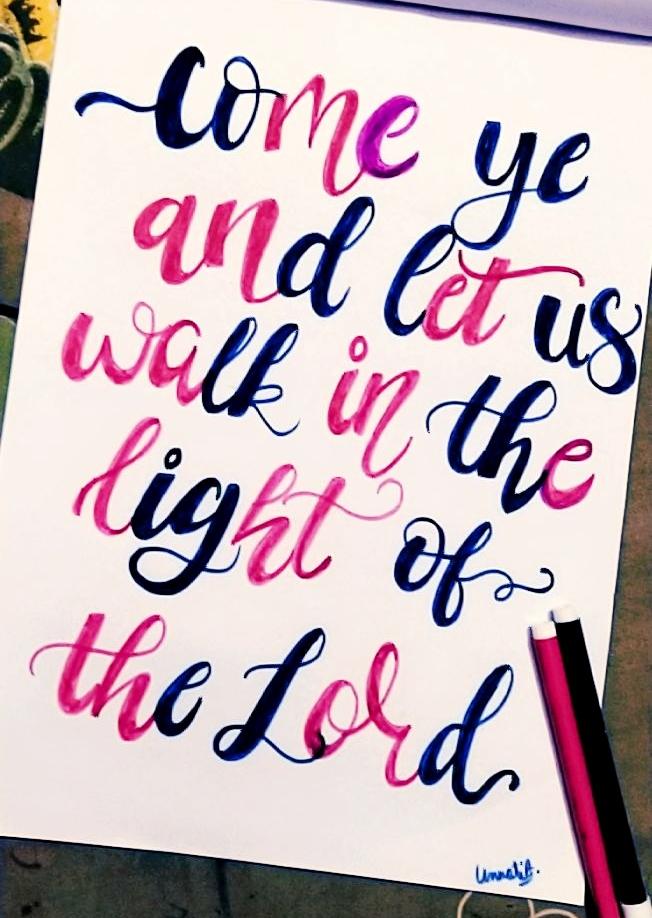 come ye
and let us
walk in the
light of
the Lord